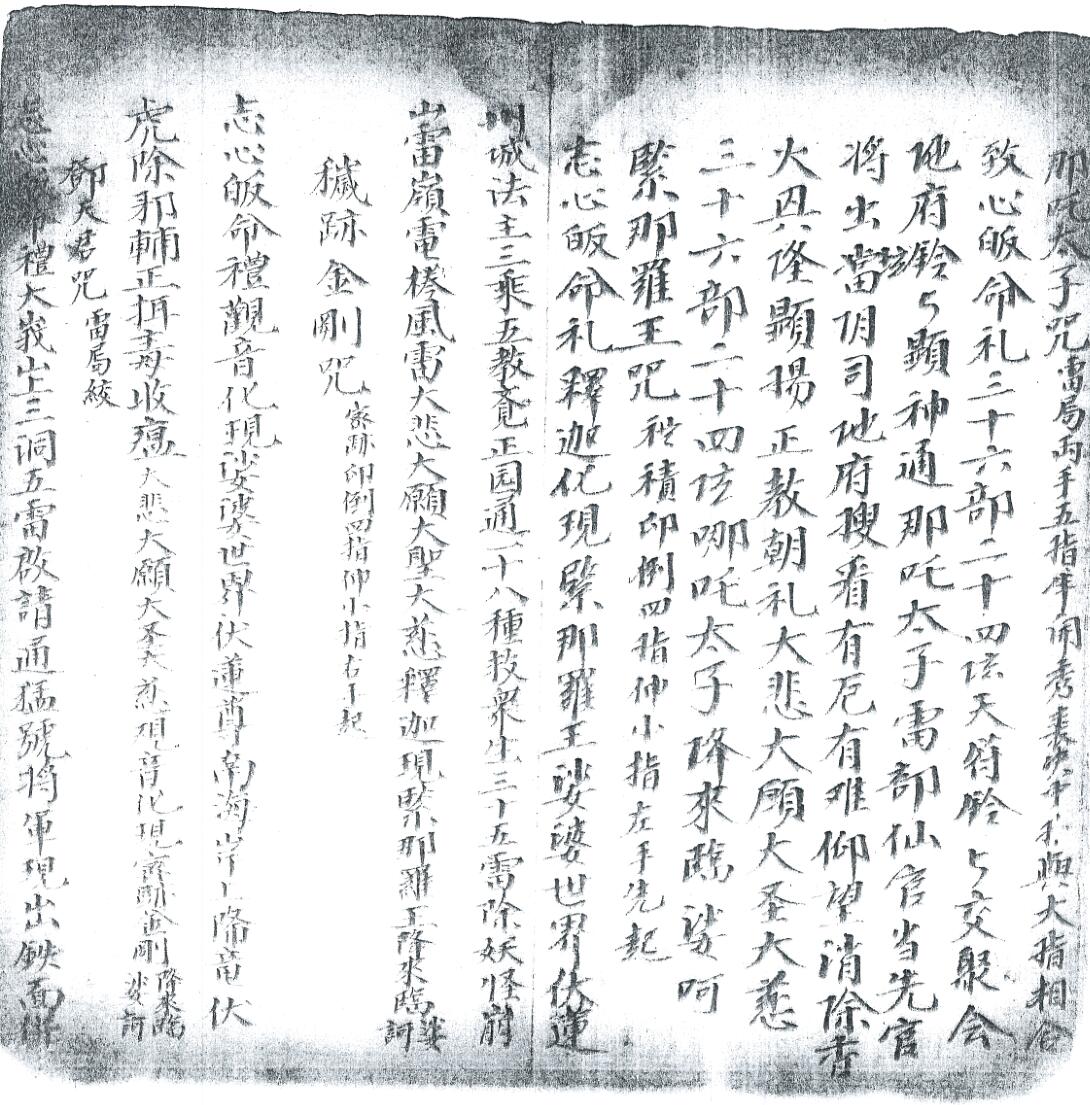 那吒太子咒雷局兩手五指年開秀裏中大與大指相合
致心皈命礼三十六部二十四弦天符鈴々交聚会
地府鈴々顯神通那吒太子雷部仙官当先官
将出當阴司地府搜看有厄有难仰望消除者
大具隆顯揚正教朝礼大悲大願大圣大慈
三十六部二十四弦哪吒太子降來臨娑呵
緊那羅王咒 積印例四指伸小指左手先起
志心皈命礼釋迦化現緊那羅王娑婆世界伏蓮
城法主三乘五教竟正园通二十八種技衆生三十五雷除妖怪崩
山雷嶺電捲風雷大悲大願大聖大慈釋迦現緊那羅王降來臨娑訶
穢跡金剛咒 跡印例四指伸小指右手起
志心皈命禮觀音化現娑婆世界伏蓮尊南海岸上降竜伏
虎除邪輔正揖毒收瘟大悲大願大圣大慈現音化現金剛降來臨娑訶
鄧天君咒 雷局絞
志心命禮大峩山上三洞五雷啟請通猛號将軍現出鉄面